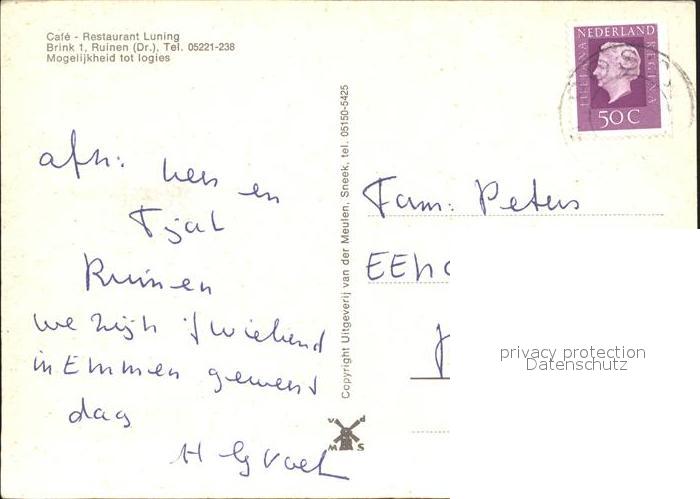 Café - Restaurant Luning
Brink 1, Ruinen (Dr.), Tel. 05221-238
Mogelijkheid tot logies
NEDERLAND
JULIANA REGINA
50 C
afh: hers en
Tjal
Ruinen
we zijn 'f Wiekend
in Emmen geweest
dag
H
Copyright Uitgeverij van der Meulen, Sneek, tel. 05150-5425
v d
M S
Fam: Peters
privacy protection
Datenschutz